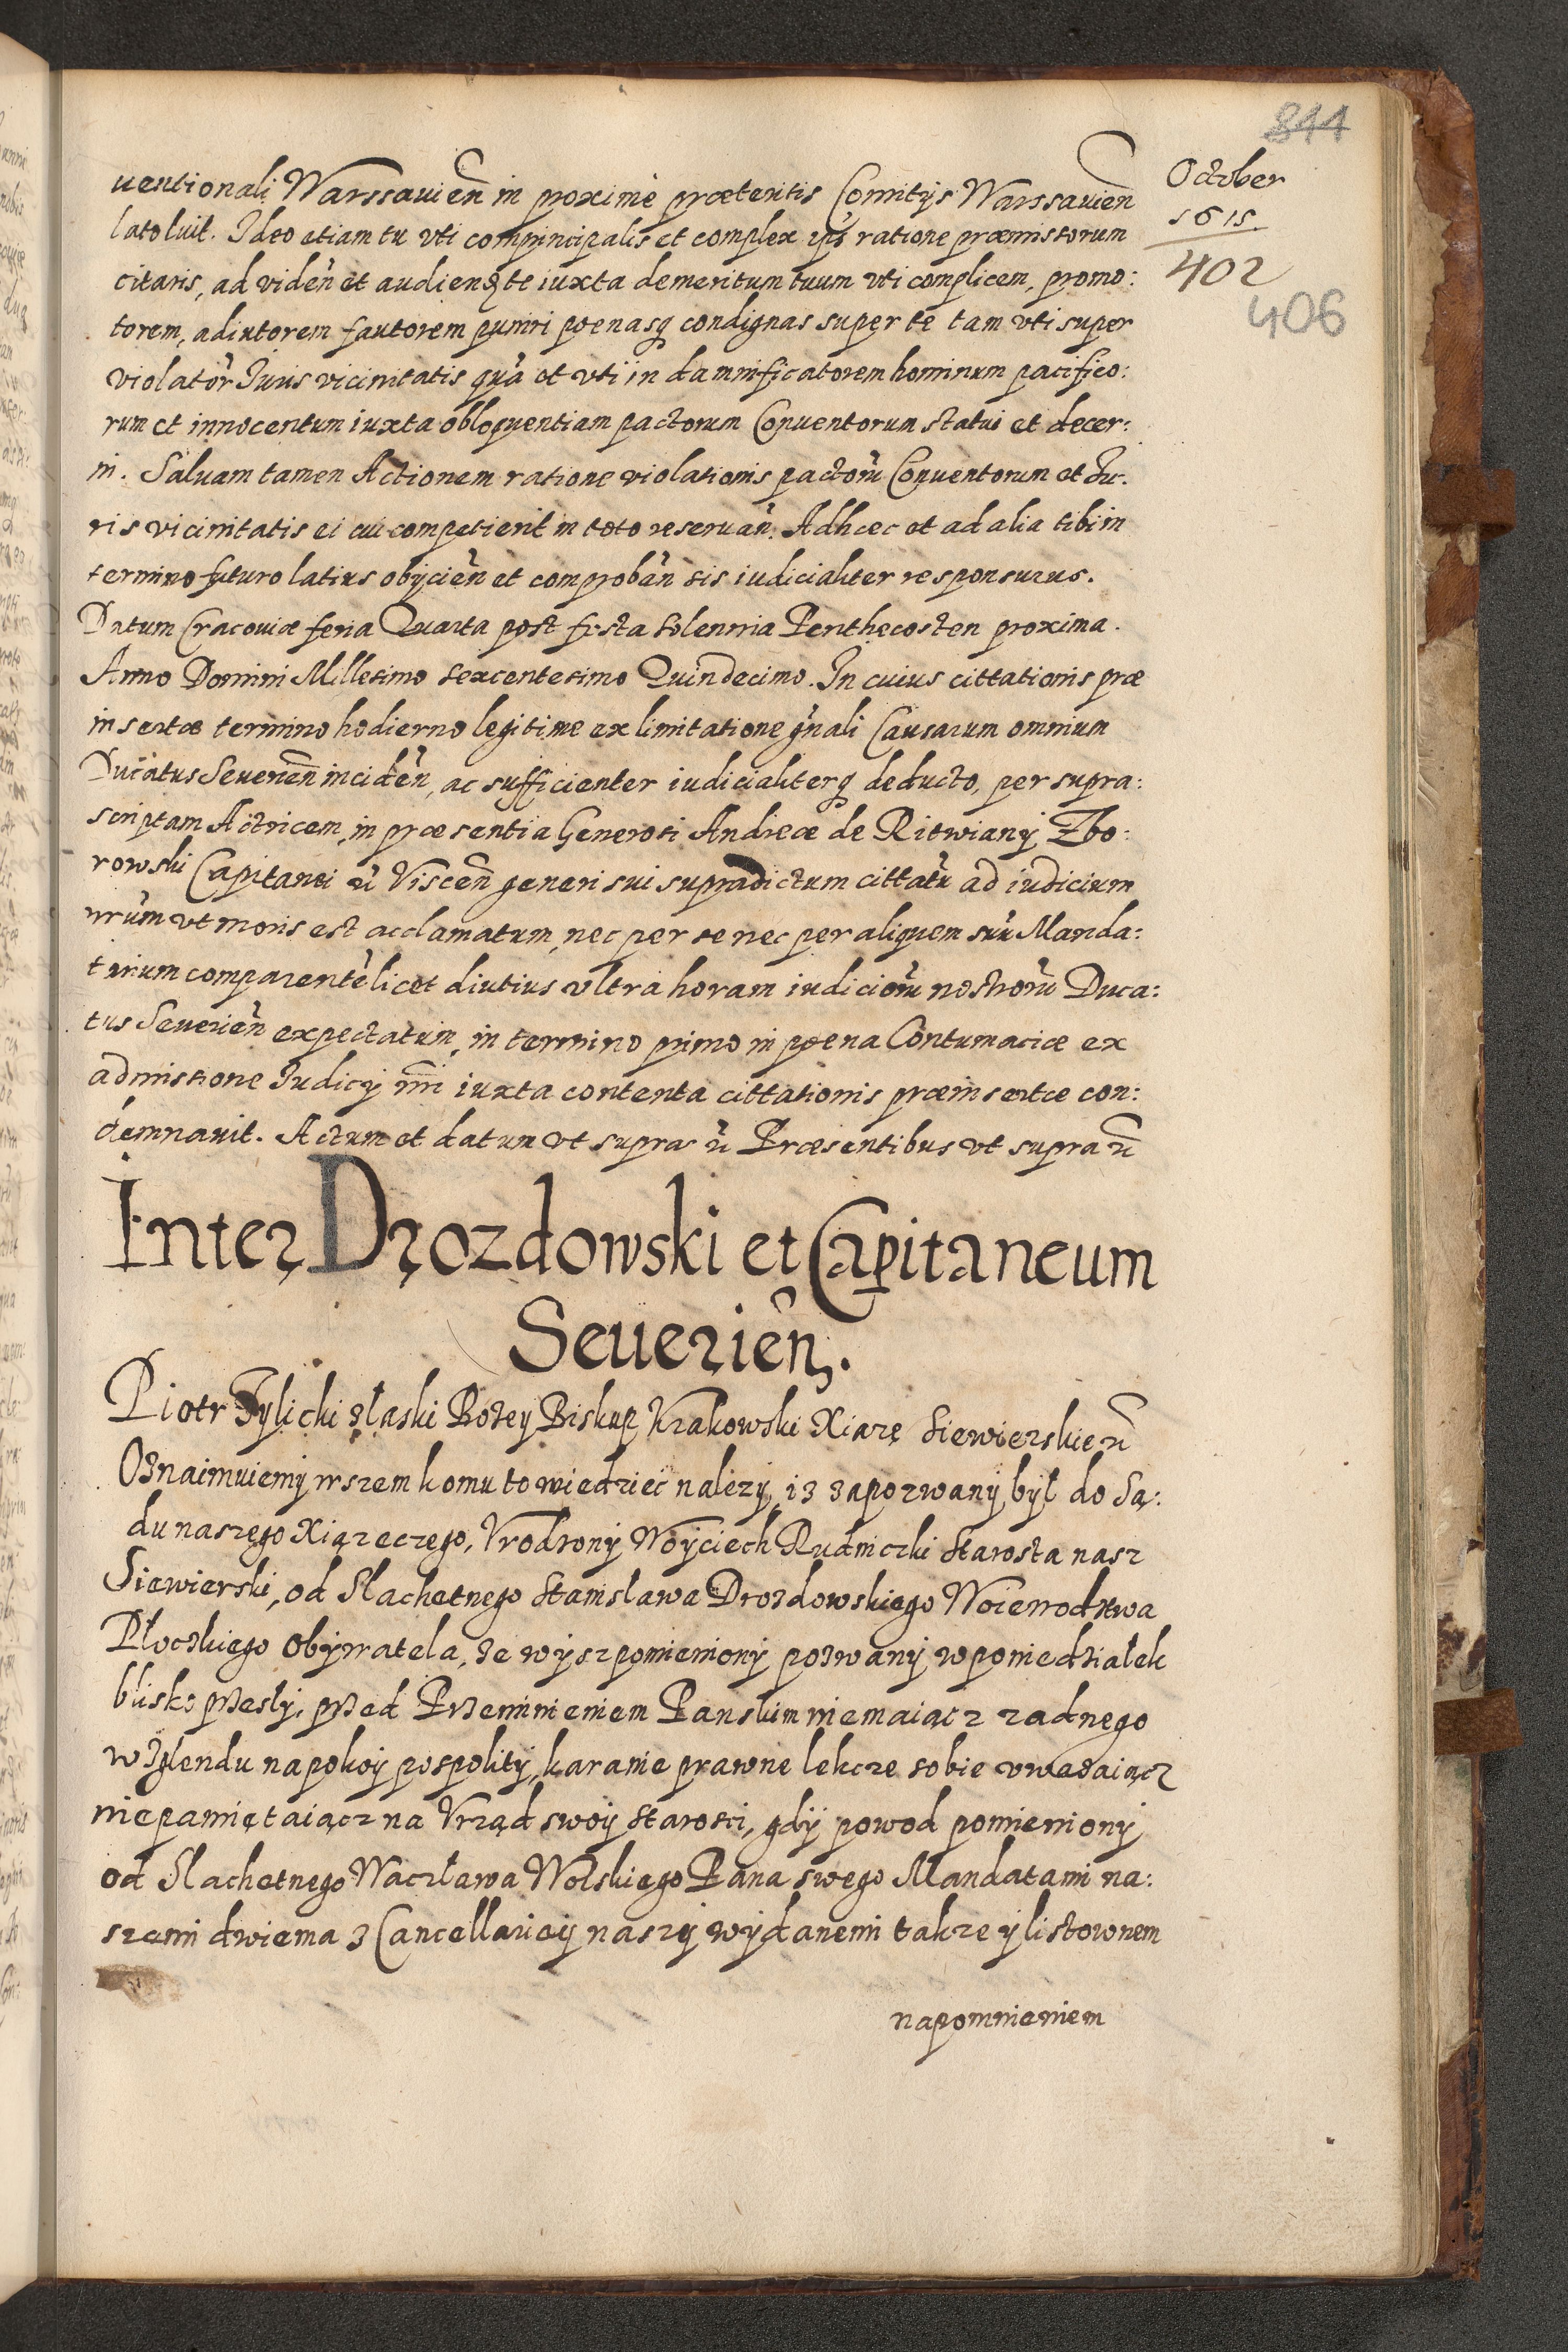 844
October
1615.
402
406
uentionali Warssauien̄ in proxime præteritis Comitÿs Warssauien̄
lato luit. Ideo etiam tu vti comprincipalis et complex ip̄s ratione præmissorum
citaris, ad viden̄ et audienq̣ te iuxta demeritum tuum vti complicem, promo:
torem, adiutorem fautorem puniri poenasq̣ condignas super te tam vti super
violator̄ Iuris vicinitatis qua̓ et vti in damnificatorem hominum pacifico:
rum et innocentum iuxta obloquentiam pactorum Conuentorum statui et decer:
ni. Saluam tamen Actionem ratione violationis pactorū Conuentorum et Iu:
ris vicinitatis ei cui competierit in toto reseruan̄. Adhæc et ad alia tibi in
termino futuro latius obÿcien̄ et comproban̄ sis iudicialiter responsurus.
Datum Cracouiæ feria Quarta post festa solennia Penthecosten proxima.
Anno Domini Millesimo sexcentesimo Quindecimo. In cuius cittationis præ
insertæ termino hodierno legitime ex limitatione gn̄ali Causarum omnium
Ducatus Seuerien̄ inciden̄, ac sufficienter iudicialiterq̣ deducto, per supra:
scriptam Actricem, in præsentia Generosi Andreæ de Ritwianÿ Zbo:
rowski Capitanei ū Viscen̄ generi sui supradictum cittatū ad iudicium
nr̄um vt moris est acclamatum, nec per se nec per aliquem suū Manda:
tarium comparentē licet diutius vltra horam iudiciorū nostrorū Duca:
tus Seuerien̄ expectatum, in termino primo in poena Contumaciæ ex
admissione Iudicÿ nr̄i iuxta contenta cittationis præinsertæ con:
demnauit. Actum et datum vt supra ū Præsentibus vt supra ū
Inter Drozdowski et Capitaneum
Seuerien̄.
Piotr Tylicki z łaski Bozey Biskup Krakowski Xiązę Siewierskie ū
Oznaimuiemÿ wszem komu to wiedzieć nalezÿ, iz zapozwanÿ bÿł do Są:
du naszego Xiązeczego, Vrodzonÿ Woÿciech Rudniczki Starosta nasz
Siewierski, od Slachetnego Stanisława Drozdowskiego Woiewodztwa
Płoczkiego Obÿwatela, ze wÿszpomienionÿ pozwanÿ w poniedziałek
blisko przesłÿ, przed Przeminieniem Panskim niemaiącz zadnego
wzglendu na pokoÿ pospolitÿ, karanie prawne lekcze sobie vwazaiącz
niepamiętaiącz na Vrząd swoÿ Starosci, gdÿ powod pomienionÿ
od Slachetnego Wacława Wolskiego Pana swego Mandatami na:
szemi dwiema z Cancellarieÿ naszÿ wÿdanemi takze ÿ listownem
napomnieniem